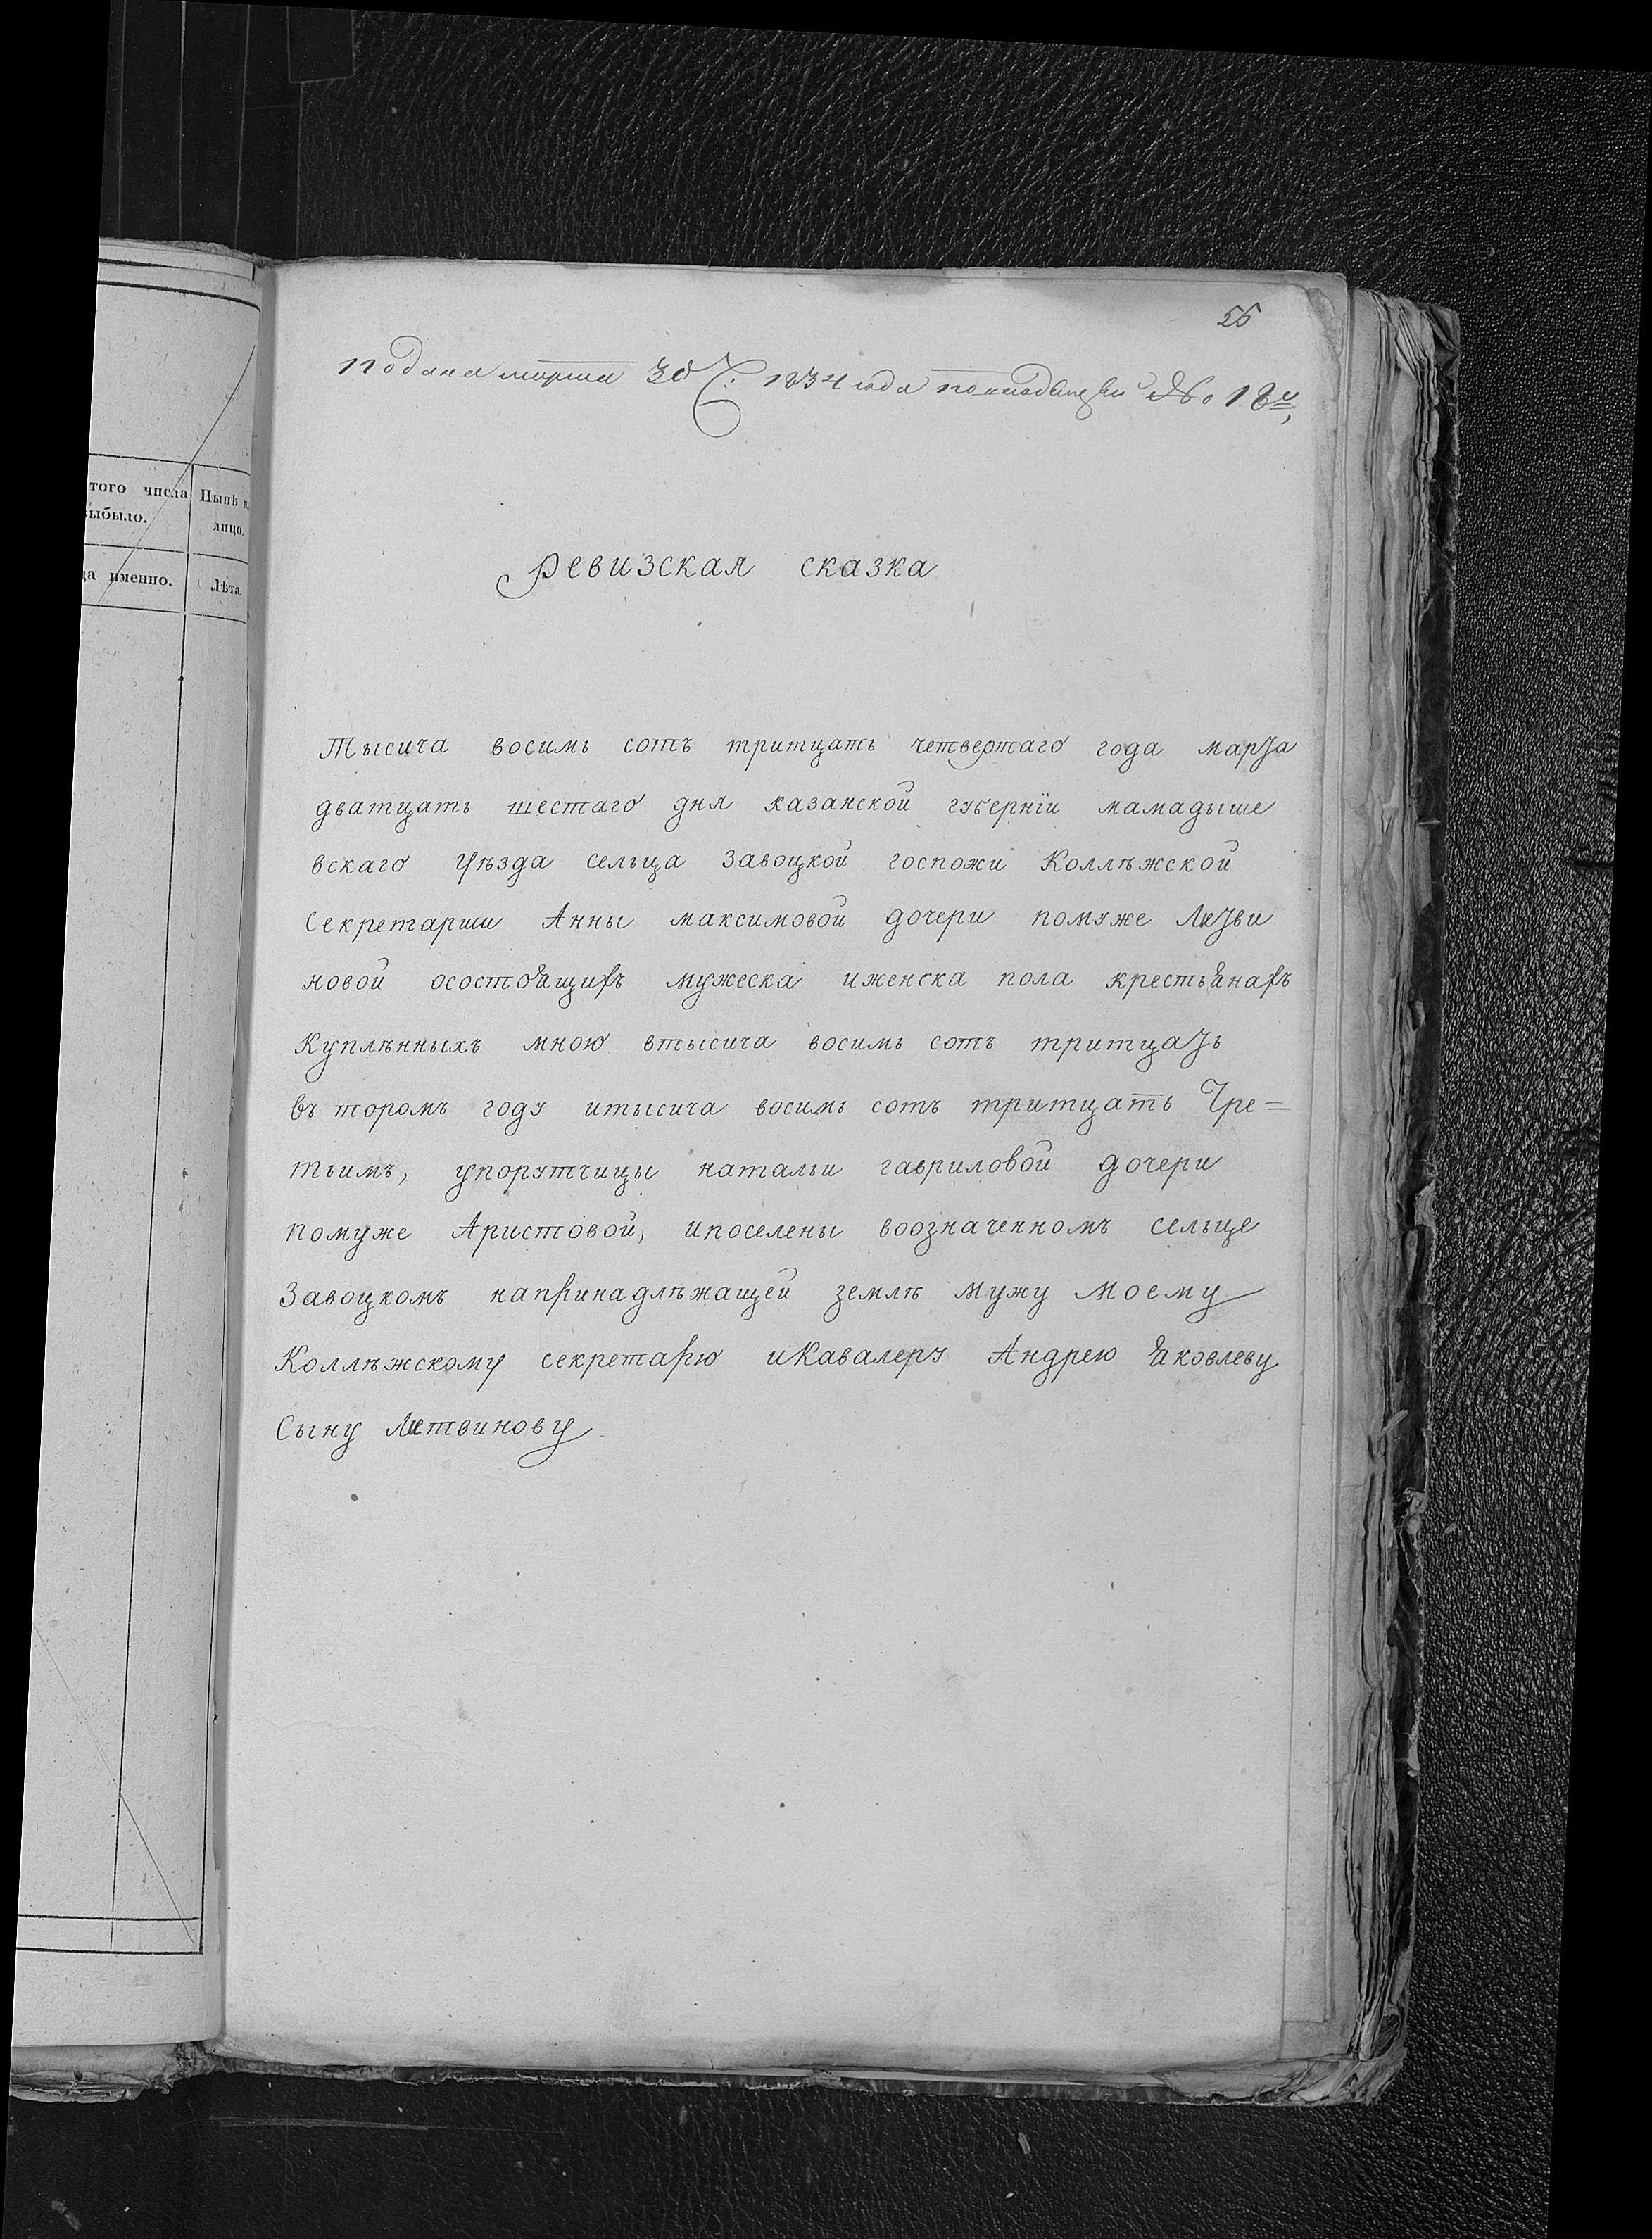 55
подана марта 30 1834 года №о 18й,
Ревизская сказка
Тысича восимь сотъ тритцать четвертаго года марта
дватцать шестаго дня казанской губернїи мамадыше
вскаго уѣзда сельца Завоцкой госпожи Коллѣжской
Секретарши Анны максимовой дочери помуже Литви
новой осостоящихъ мужеска иженска пола крестьянахъ
Куплѣнныхъ мною втысича восимь сотъ тритцать
въ торомъ году итысича восимь сотъ тритцать Тре=
тьимъ, упорутчицы натальи гавриловой дочери
помуже Аристовой, ипоселены воозначенномъ сельце
Завоцкомъ напринадлѣжащей землѣ мужу моему
Коллѣжскому секретарю иКавалеру Андрею Яковлеву
Сыну Литвинову
того числа
выбыло.
Нынѣ на
лицо.
да именно.
Лѣта.